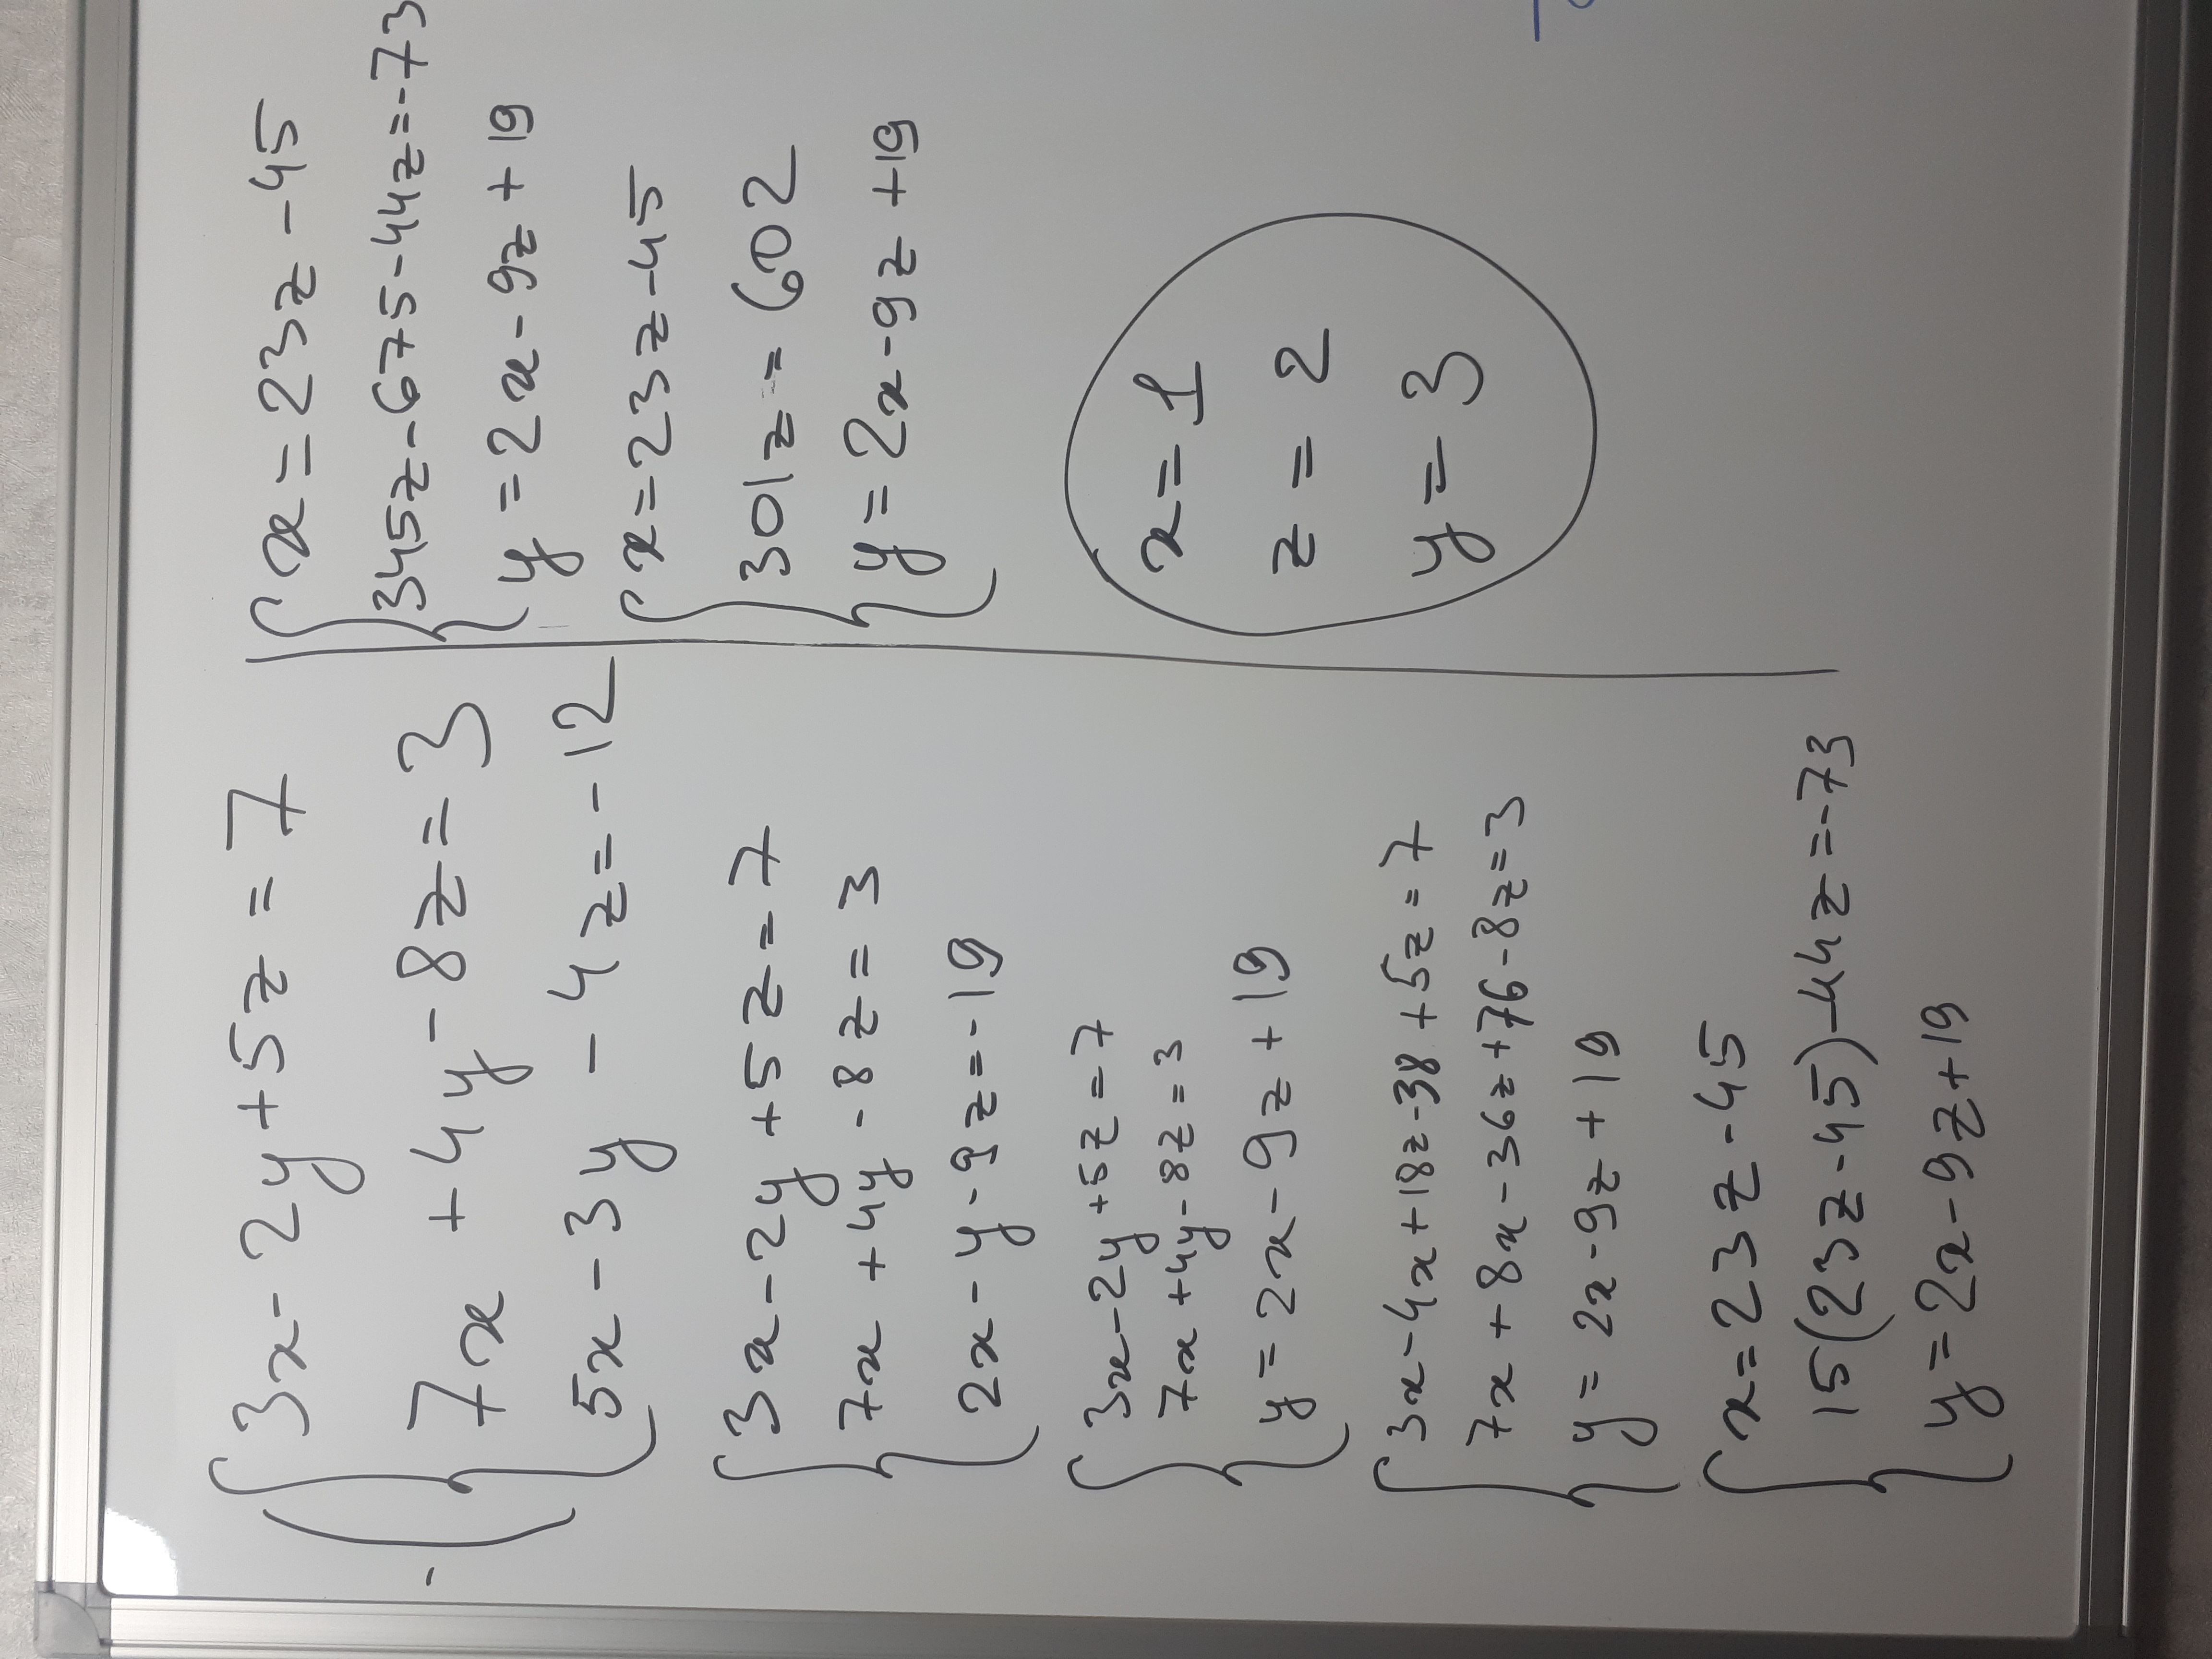 3x - 2y + 5z = 7
7x + 4y - 8z = 3
5x - 3y - 4z = -12
3x - 2y + 5z = 7
7x + 4y - 8z = 3
2x - y - 9z = -19
3x - 2y + 5z = 7
7x + 4y - 8z = 3
y = 2x - 9z + 19
3x - 4x + 18z - 38 + 5z = 7
7x + 8x - 36z + 76 - 8z = 3
y = 2x - 9z + 19
x = 23z - 45
15(23z - 45) - 44z = -73
y = 2x - 9z + 19
x = 23z - 45
345z - 675 - 44z = -73
y = 2x - 9z + 19
x = 23z - 45
301z = 602
y = 2x - 9z + 19
x = 1
z = 2
y = 3